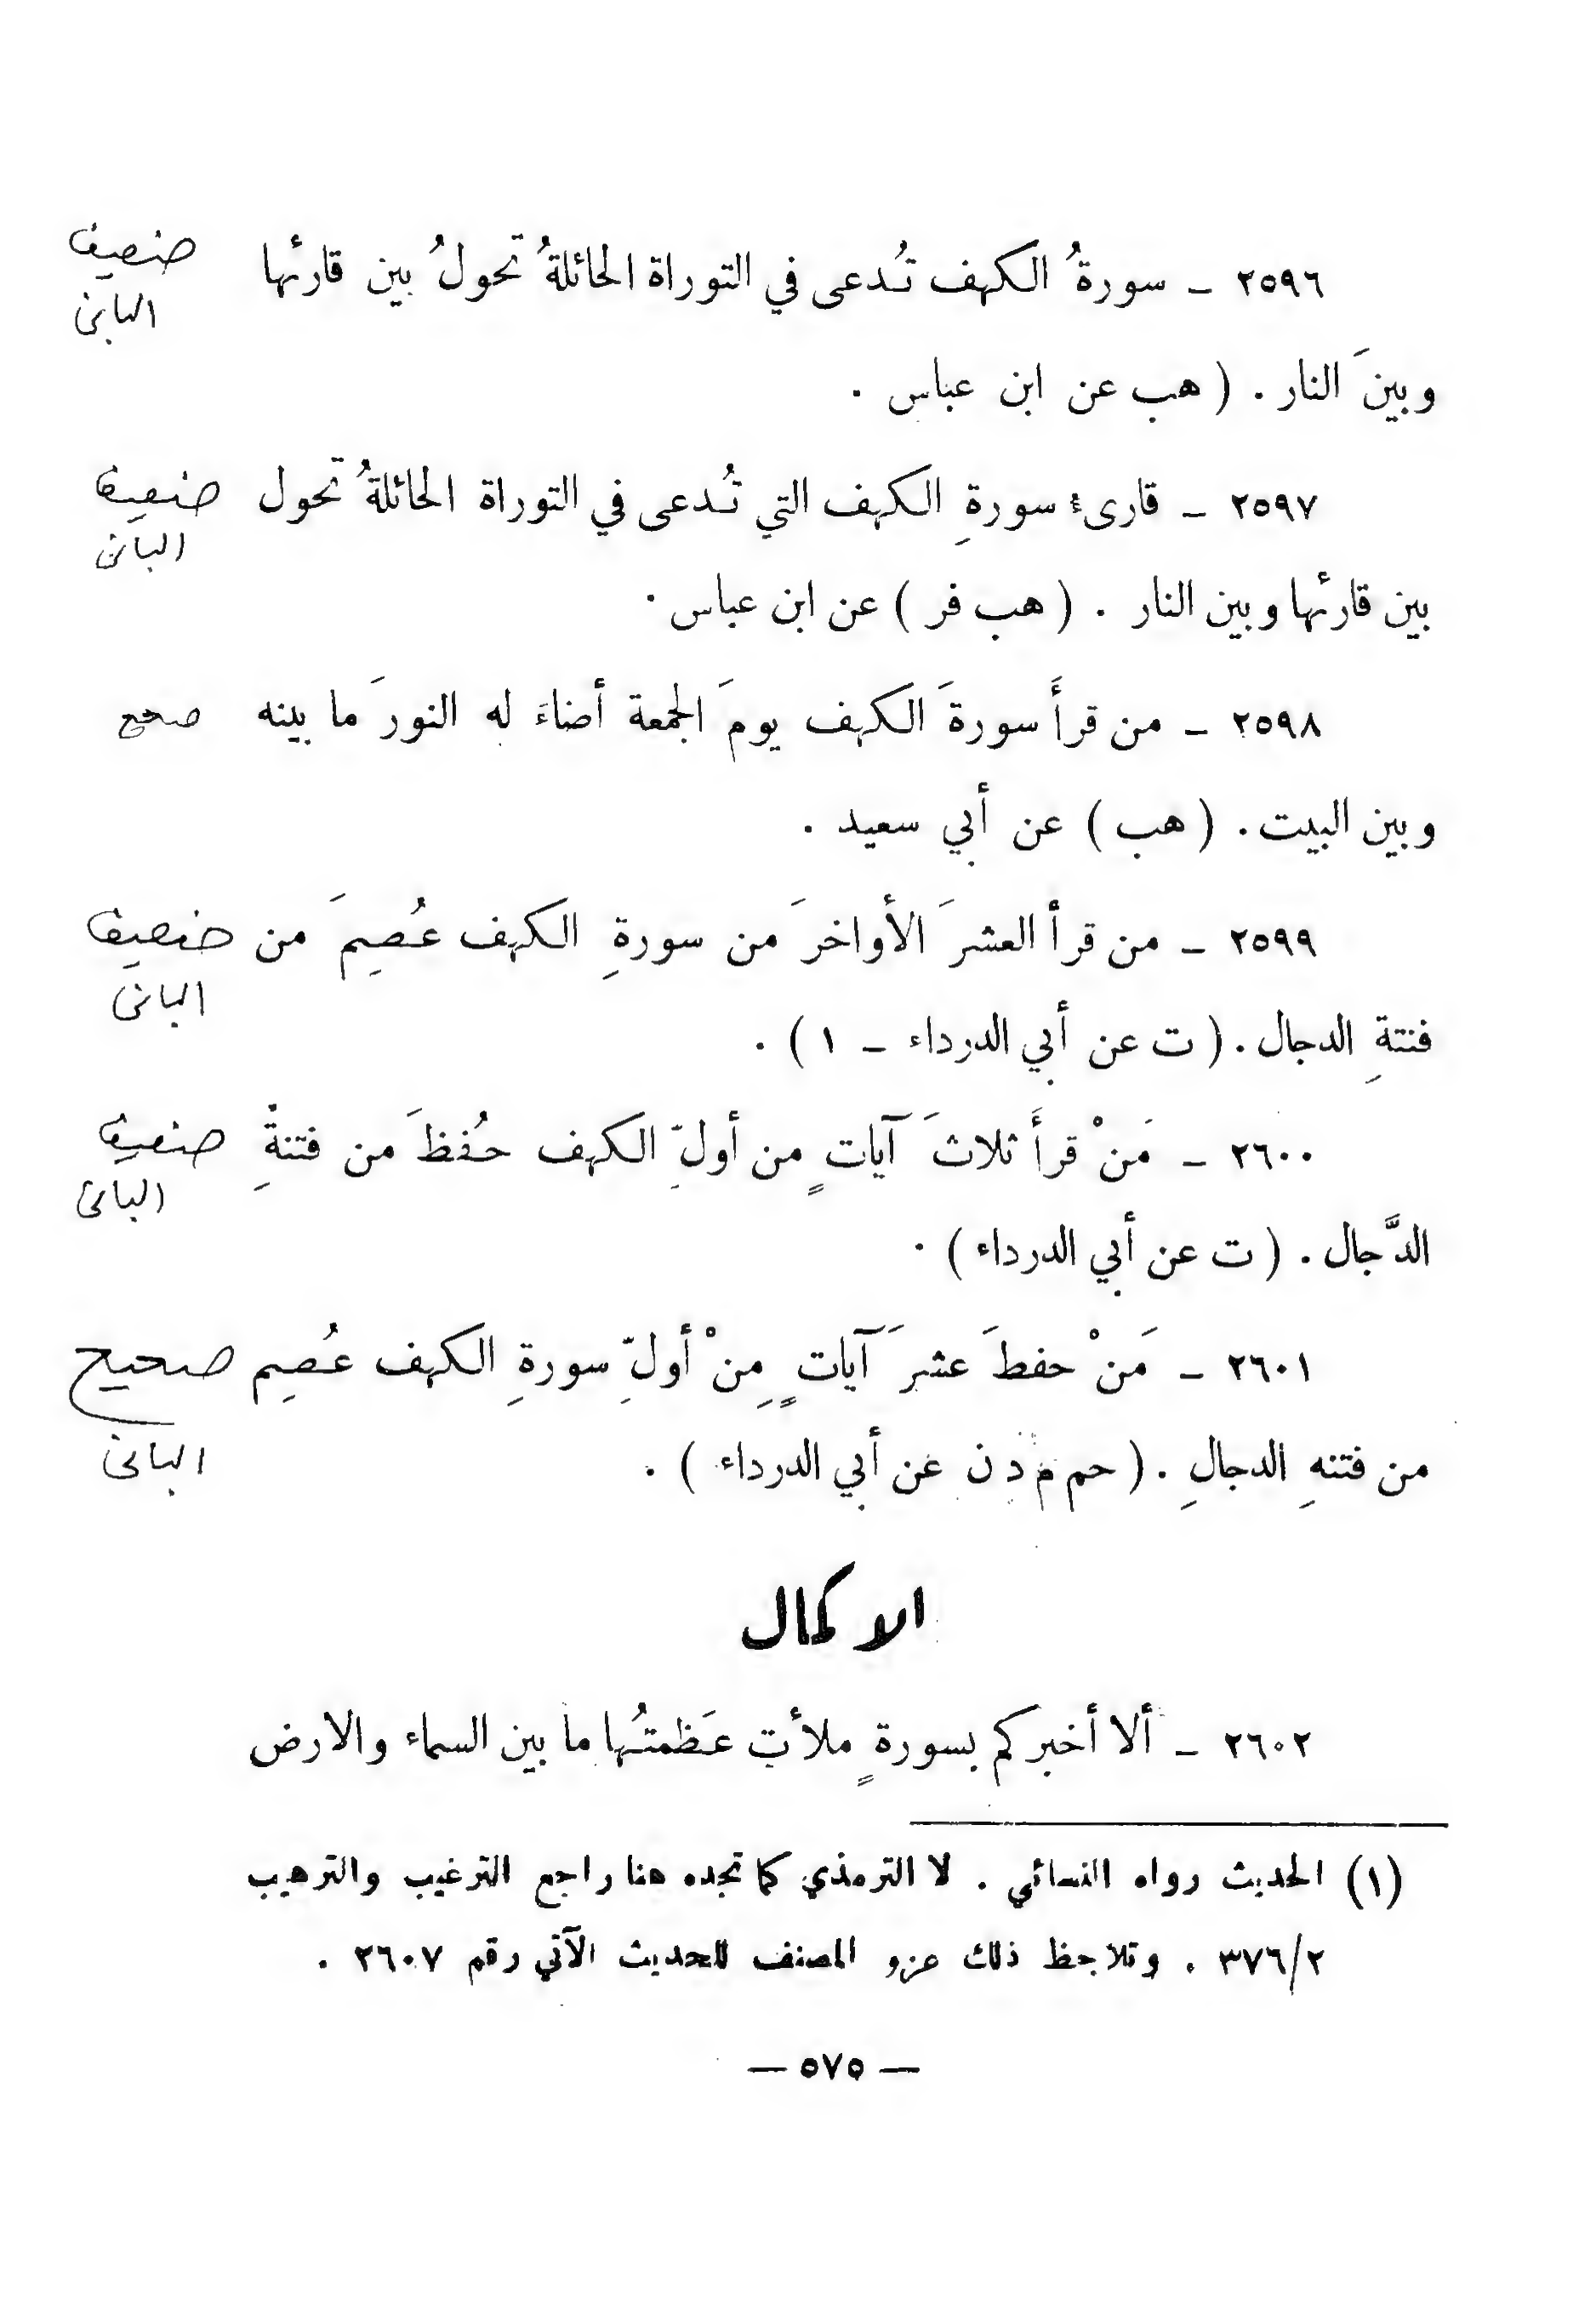 ٢٥٩٦ ـ سورةُ الكهف تُدعى في التوراة الحائلةُ تحولُ بين قارئها ضعيف
البانى
وبينَ النار . ( هب عن ابن عباس .
٢٥٩٧ ـ قارىء سورةِ الكهف التي تُدعى في التوراة الحائلةُ تحول ضعيف
البانى
بين قارئها وبين النار . ( هب فر ) عن ابن عباس .
٢٥٩٨ ـ من قرأَ سورةَ الكهف يومَ الجمعة أضاءَ له النورَ ما بينه صحح
وبين البيت . ( هب ) عن أبي سعيد .
٢٥٩٩ ـ من قرأ العشرَ الأواخرَ من سورةِ الكهف عُصِمَ من ضعيف
البانى
فتنةِ الدجال . ( ت عن أبي الدرداء ـ ١ ) .
٢٦٠٠ ـ مَنْ قرأَ ثلاثَ آياتٍ من أولِّ الكهف حُفظَ من فتنةِ ضعيف
البانى
الدَّجال . ( ت عن أبي الدرداء ) .
٢٦٠١ ـ مَنْ حفظَ عشرَ آياتٍ مِنْ أولِّ سورةِ الكهف عُصِم صحيح
البانى
من فتنهِ الدجالِ . ( حم م د ن عن أبي الدرداء ) .
الاكمال
٢٦٠٢ ـ ألا أخبركم بسورةٍ ملأت عَظمتُها ما بين السماء والارض
(١) الحديث رواه النسائي . لا الترمذي كما تجده هنا راجع الترغيب والترهيب
٣٧٦/٢ . وتلاحظ ذلك عزو المصنف للحديث الآتي رقم ٢٦٠٧ .
— ٥٧٥ —